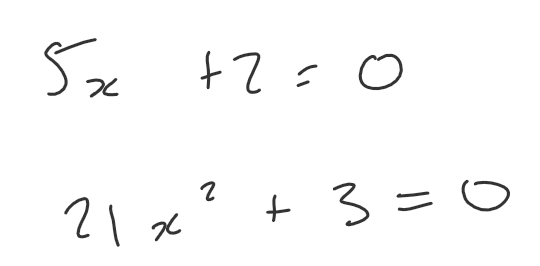 5x + 2 = 0
21x² + 3 = 0